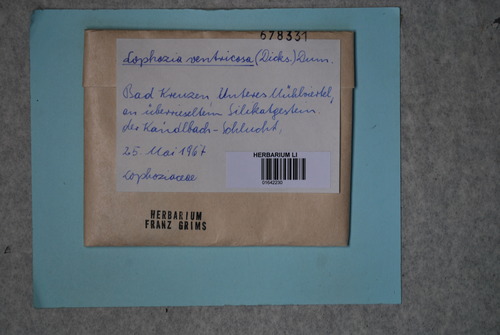 678331
Lophozia ventricosa (Dicks.) Dum.
Bad Kreuzen, Unteres Mühlviertel,
an überrieseltem Silikatgestein
der Kaindlbach-Schlucht,
25. Mai 1967
Lophoziaceae
HERBARIUM LI
01642230
HERBARIUM
FRANZ GRIMS